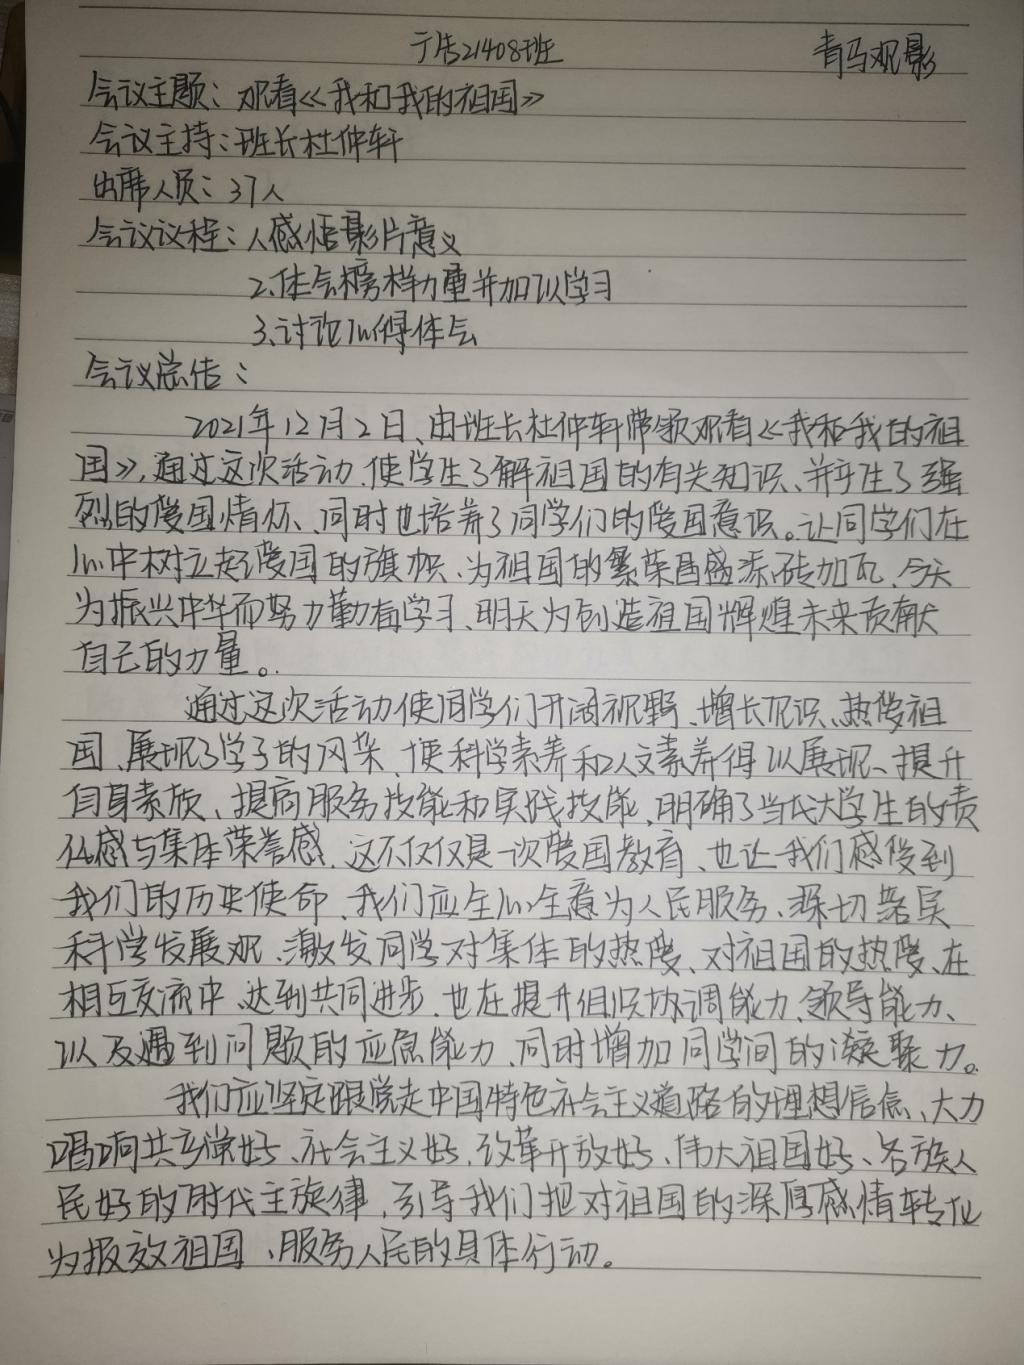 广告21408班 青马观影
会议主题：观看《我和我的祖国》
会议主持：班长杜仲轩
出席人员：37人
会议议程：1.感悟影片意义
2.体会榜样力量并加以学习
3.讨论心得体会
会议总结：
2021年12月2日、由班长杜仲轩带领观看《我和我的祖
国》，通过这次活动，使学生了解祖国的有关知识、并产生了强
烈的爱国情怀、同时也培养了同学们的爱国意识。让同学们在
心中树立起爱国的旗帜、为祖国的繁荣昌盛添砖加瓦，今天
为振兴中华而努力勤奋学习、明天为创造祖国辉煌未来贡献
自己的力量。
通过这次活动使同学们开阔视野、增长见识、热爱祖
国、展现了学子的风采，使科学素养和人文素养得以展现、提升
自身素质、提高服务技能和实践技能，明确了当代大学生的责
任感与集体荣誉感，这不仅仅是一次爱国教育、也让我们感受到
我们的历史使命、我们应全心全意为人民服务、深切落实
科学发展观、激发同学对集体的热爱、对祖国的热爱、在
相互交流中、达到共同进步，也在提升组织协调能力、领导能力、
以及遇到问题的应急能力、同时增加同学间的凝聚力。
我们应坚定跟党走中国特色社会主义道路的理想信念、大力
唱响共产党好、社会主义好、改革开放好、伟大祖国好、各族人
民好的时代主旋律，引导我们把对祖国的深厚感情转化
为报效祖国、服务人民的具体行动。